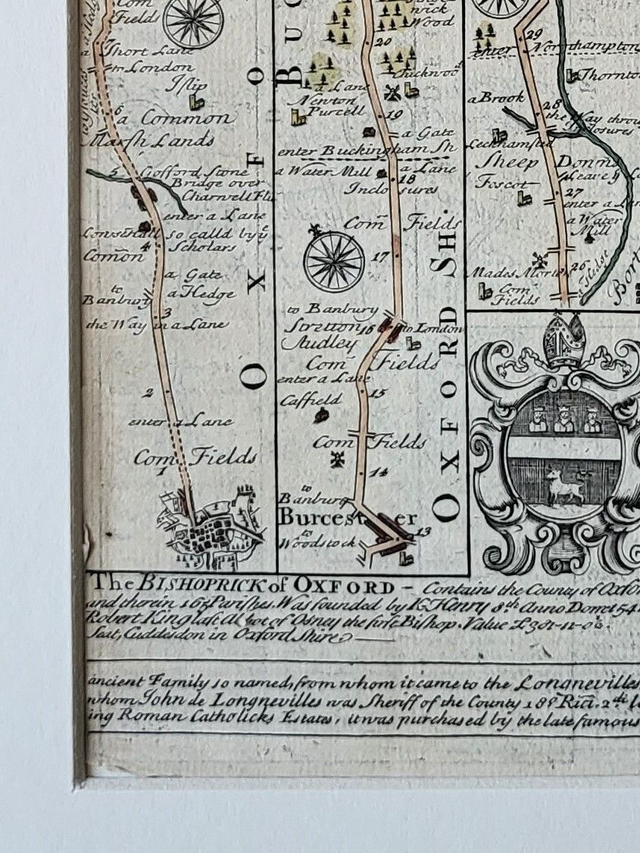 Com
Field
a Short Lane
to London
Islip
6
a Common
Marsh Lands
5
Gosford Stone
Bridge over
Charwell Flu
enter a Lane
so calld by ye
Scholars
4
Comon
a Gate
to
Banbury
a Hedge
3
the Way in a Lane
2
enter a Lane
Com Fields
1
OXFO
BUC
wick
Wood
20
a Lane
Chickwood
Newton
Purcell
19
a Gate
enter Buckingham Sh
a Water Mill
a Lane
18
Inclosures
Com Fields
17
to Banbury
Stretton
16
to London
Audley
Com Fields
enter a Lane
15
Caffield
Com Fields
14
to
Banbury
Burcester
13
to
Woodstock
OXFORD SH.
29
enter Northampton
Thornto
a Brook
28
the Way throu
closures
Leckhamsted
Sheep Downs
Leave
Foscot
27
enter a Lan
a Water
Mill
26
Mades Morton
Com
Fields
a Hedge
Bort
The BISHOPRICK of OXFORD – Contains the County of Oxfo
and therein 195 Parishes. Was founded by K. Henry 8th Anno Dom 154
Robert King last Abbot of Osney the first Bishop. Value £381-11-0½.
Seat, Cuddesdon in Oxford Shire
ancient Family so named, from whom it came to the Longnevilles
whom John de Longnevilles was Sheriff of the County 18th Ric. 2d
ing Roman Catholicks Estates, it was purchased by the late famous